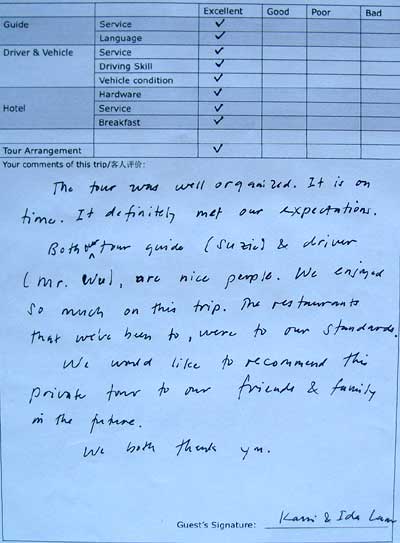 Excellent Good Poor Bad
Guide Service ✓
Language ✓
Driver & Vehicle Service ✓
Driving Skill ✓
Vehicle condition ✓
Hardware ✓
Hotel Service ✓
Breakfast ✓
Tour Arrangement ✓
Your comments of this trip/客人评价:
The tour was well organized. It is on
time. It definitely met our expectations.
Both our tour guide (Suzie) & driver
(Mr. Wu), are nice people. We enjoyed
so much on this trip. The restaurants
that we've been to, were to our standards.
We would like to recommend this
private tour to our friends & family
in the future.
We both thank you.
Guest's Signature: & Ida Lam